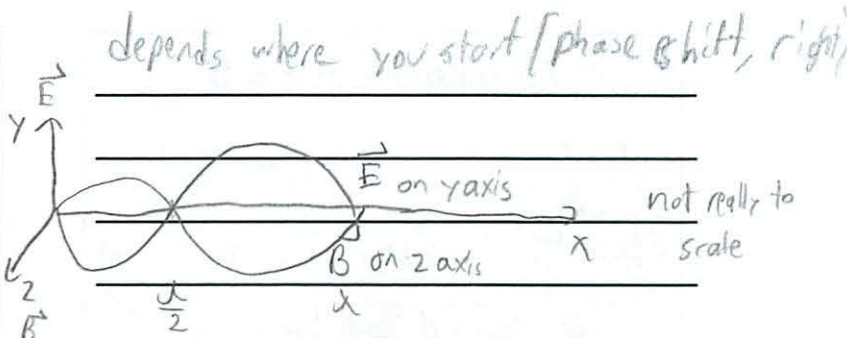 depends where you start (phase shift, right)
E
y
E on y axis
not really to
scale
x
B on z axis
z
B
λ/2
λ